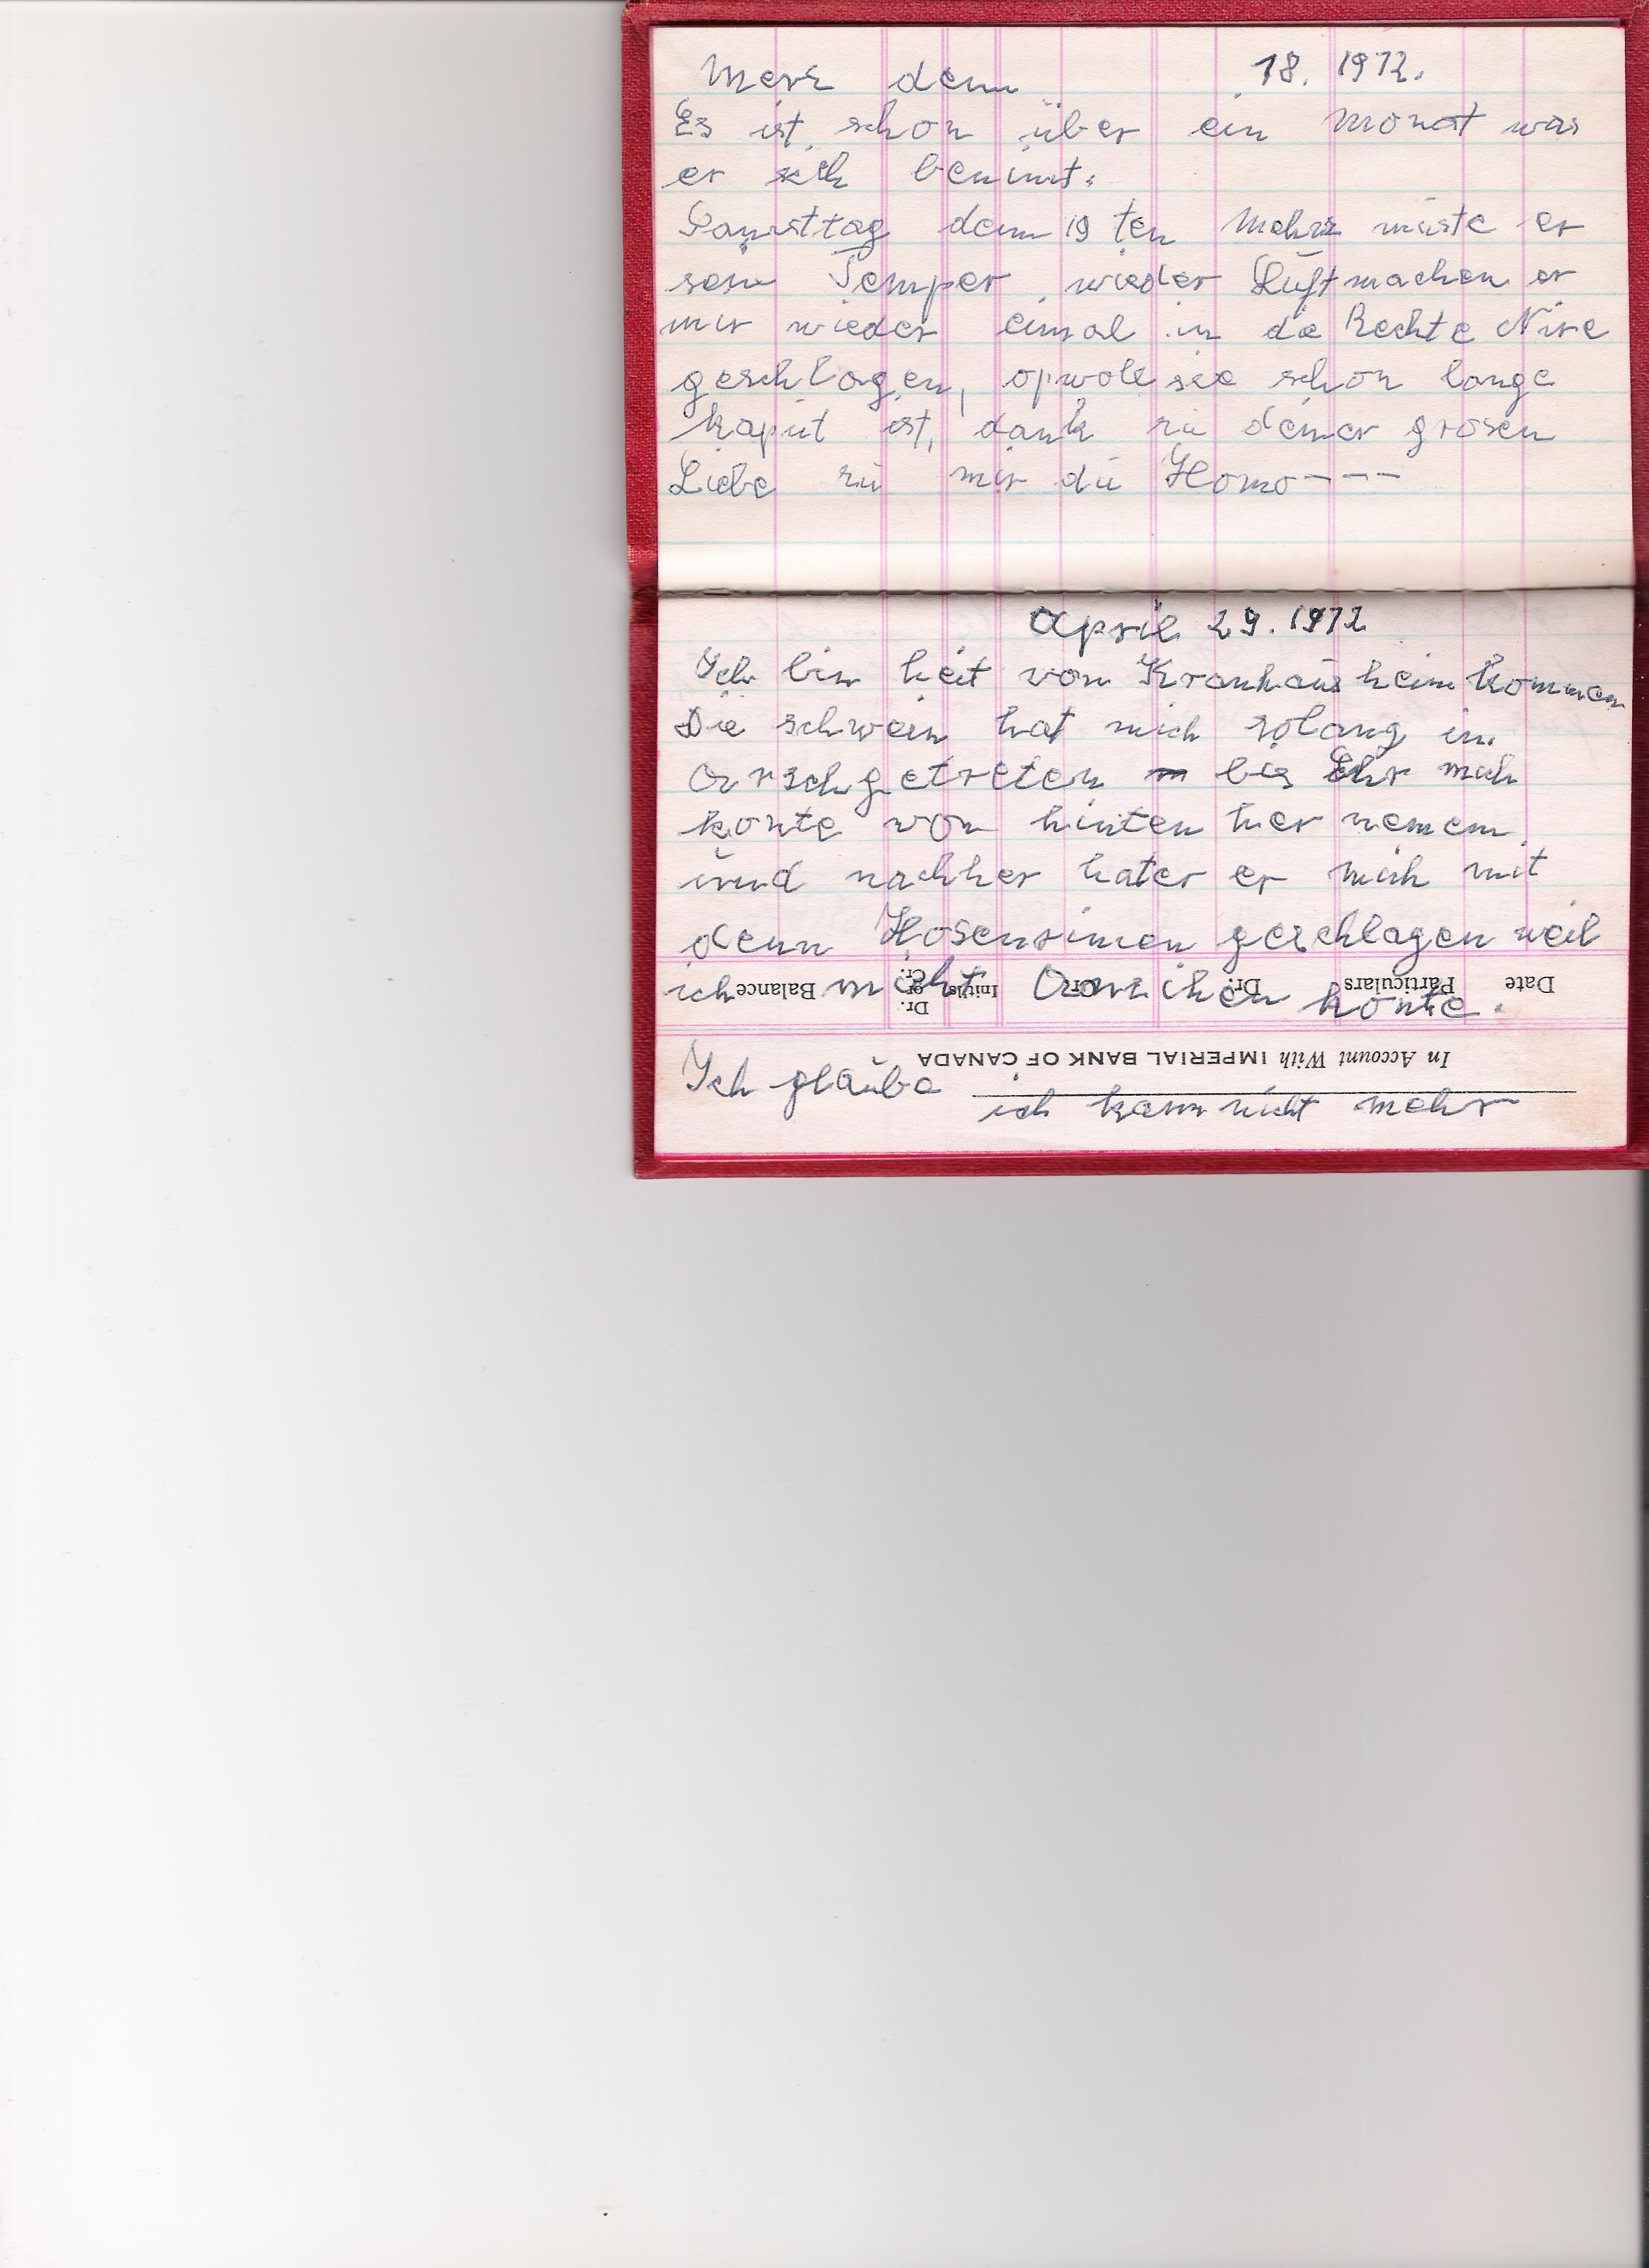 Merz dem 18. 1972.
Es ist schon über ein Monat was
er sich benimt.
Samsttag dem 19 ten Mehrz müste er
sein Temper wieder Luftmachen er
mir wieder eimal in die Rechte Nire
geschlagen, opwole sie schon lange
kaput ist, dank zu deiner grosen
Liebe zu mir du Homo----
April 29. 1972
Ich bin heit von Krankaus heim kommen
Die schwein hat mich solang in
Arrsch getreten bis Ehr mich
konte von hinten her nemem
und nachher hater er mich mit
denn Hosenrimen geschlagen weil
ich nicht konte.
Date Particulars Dr. Cr. Initials Dr. or Cr. Balance
In Account With IMPERIAL BANK OF CANADA
Ich glaube
ich kann nicht mehr